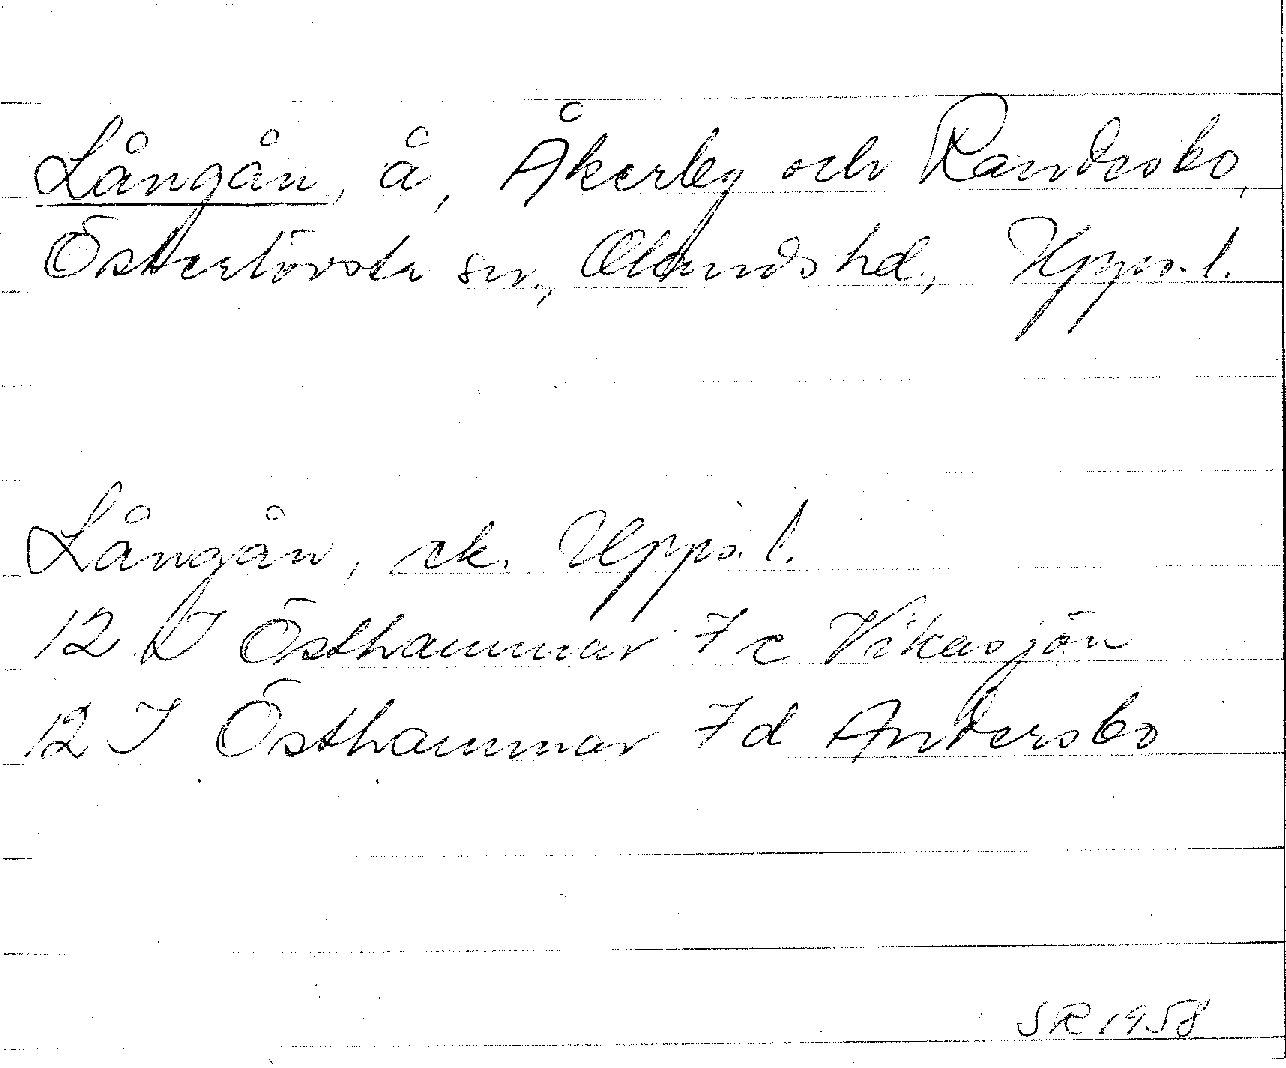 Långån, å, Åkerby och Randersbo,
Österlövsta sn., Olands hd., Upps. l.
Långån, ek. Upps. l.
12 I Östhammar 7 c Vikasjön
12 I Östhammar 7 d Andersbo
SR 1958